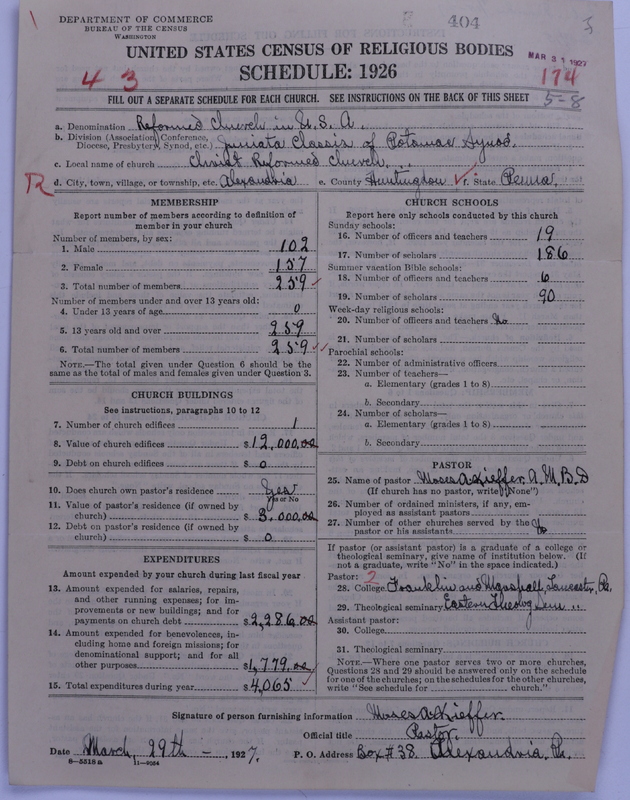 DEPARTMENT OF COMMERCE
BUREAU OF THE CENSUS
WASHINGTON
404
UNITED STATES CENSUS OF RELIGIOUS BODIES
MAR 31 1927
SCHEDULE: 1926
4 3
174
FILL OUT A SEPARATE SCHEDULE FOR EACH CHURCH. SEE INSTRUCTIONS ON THE BACK OF THIS SHEET
5-8
a. Denomination Reformed Church in U.S.A.
b. Division (Association, Conference, Diocese, Presbytery, Synod, etc.) Juniata Classis of Potomac Synod.
c. Local name of church Christ Reformed Church
R
d. City, town, village, or township, etc. Alexandria e. County Huntingdon f. State Penna.
MEMBERSHIP
Report number of members according to definition of
member in your church
Number of members, by sex:
1. Male 102
2. Female 157
3. Total number of members 259
Number of members under and over 13 years old:
4. Under 13 years of age 0
5. 13 years old and over 259
6. Total number of members 259
NOTE.—The total given under Question 6 should be
same as the total of males and females given under Question 3.
CHURCH BUILDINGS
See instructions, paragraphs 10 to 12
7. Number of church edifices 1
8. Value of church edifices $12,000.00
9. Debt on church edifices $ 0
10. Does church own pastor's residence Yes
Yes or No
11. Value of pastor's residence (if owned by
church) $ 3,000.00
12. Debt on pastor's residence (if owned by
church) $ 0
EXPENDITURES
Amount expended by your church during last fiscal year
13. Amount expended for salaries, repairs,
and other running expenses; for im-
provements or new buildings; and for
payments on church debt $2,286.00
14. Amount expended for benevolences, in-
cluding home and foreign missions; for
denominational support; and for all
other purposes $1,779.00
15. Total expenditures during year $4,065
CHURCH SCHOOLS
Report here only schools conducted by this church
Sunday schools:
16. Number of officers and teachers 19
17. Number of scholars 186
Summer vacation Bible schools:
18. Number of officers and teachers 6
19. Number of scholars 90
Week-day religious schools:
20. Number of officers and teachers No
21. Number of scholars
Parochial schools:
22. Number of administrative officers
23. Number of teachers—
a. Elementary (grades 1 to 8)
b. Secondary
24. Number of scholars—
a. Elementary (grades 1 to 8)
b. Secondary
PASTOR
25. Name of pastor Moses A Kieffer. A. M. B. D
(If church has no pastor, write "None")
26. Number of ordained ministers, if any, em-
ployed as assistant pastors
27. Number of other churches served by the
pastor or his assistants No
If pastor (or assistant pastor) is a graduate of a college or
theological seminary, give name of institution below. (If
not a graduate, write "No" in the space indicated.)
Pastor: 2
28. College Franklin and Marshall, Lancaster, Pa.
29. Theological seminary Eastern Theolog Sem
Assistant pastor:
30. College
31. Theological seminary
NOTE.—Where one pastor serves two or more churches,
Questions 28 and 29 should be answered only on the schedule
for one of the churches; on the schedules for the other churches,
write "See schedule for church."
Signature of person furnishing information Moses A Kieffer.
Official title Pastor.
Date March, 29th — , 1927. P. O. Address Box # 38. Alexandria, Pa.
8—5518 a 11—9564